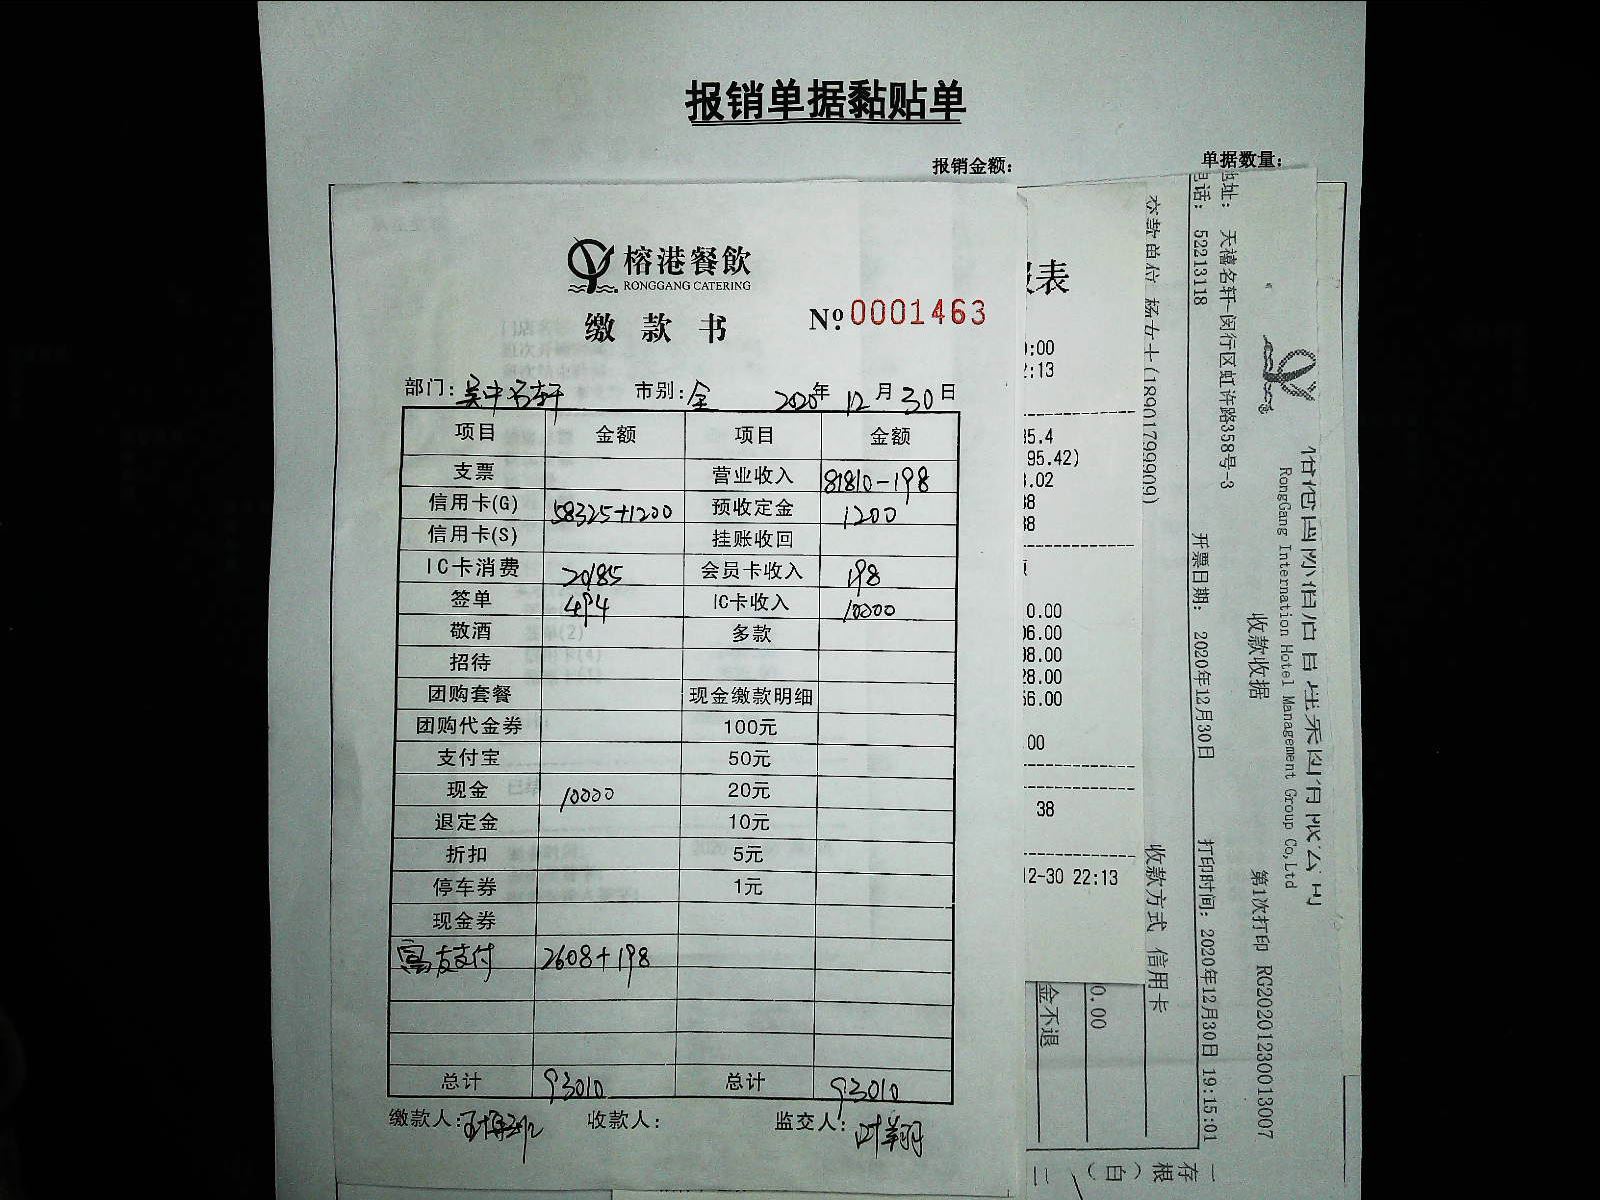 报销单据黏贴单
报销金额: 单据数量:
榕港餐飲
RONGGANG CATERING
缴款书 №0001463
部门: 吴中名轩 市别: 全 2020年 12月30日
项目 金额 项目 金额
支票 营业收入 81810-198
信用卡(G) 58325+1200 预收定金 1200
信用卡(S) 挂账收回
IC卡消费 20185 会员卡收入 198
签单 494 IC卡收入 10000
敬酒 多款
招待
团购套餐 现金缴款明细
团购代金券 100元
支付宝 50元
现金 10000 20元
退定金 10元
折扣 5元
停车券 1元
现金券
富友支付 2608+198
总计 93010 总计 93010
缴款人: 收款人: 监交人: 叶翔
表
:00
:13
5.4
95.42)
.02
38
38
0.00
06.00
08.00
28.00
56.00
.00
38
12-30 22:13
交款单位 杨女士(18901799909) 收款方式 信用卡
0.00
金不退
电话: 52213118 开票日期: 2020年12月30日 打印时间: 2020年12月30日 19:15:01
地址: 天禧名轩-闵行区虹许路358号-3
收款收据 第1次打印 RG20201230013007
RongGang Internation Hotel Management Group Co,Ltd
存根(白)